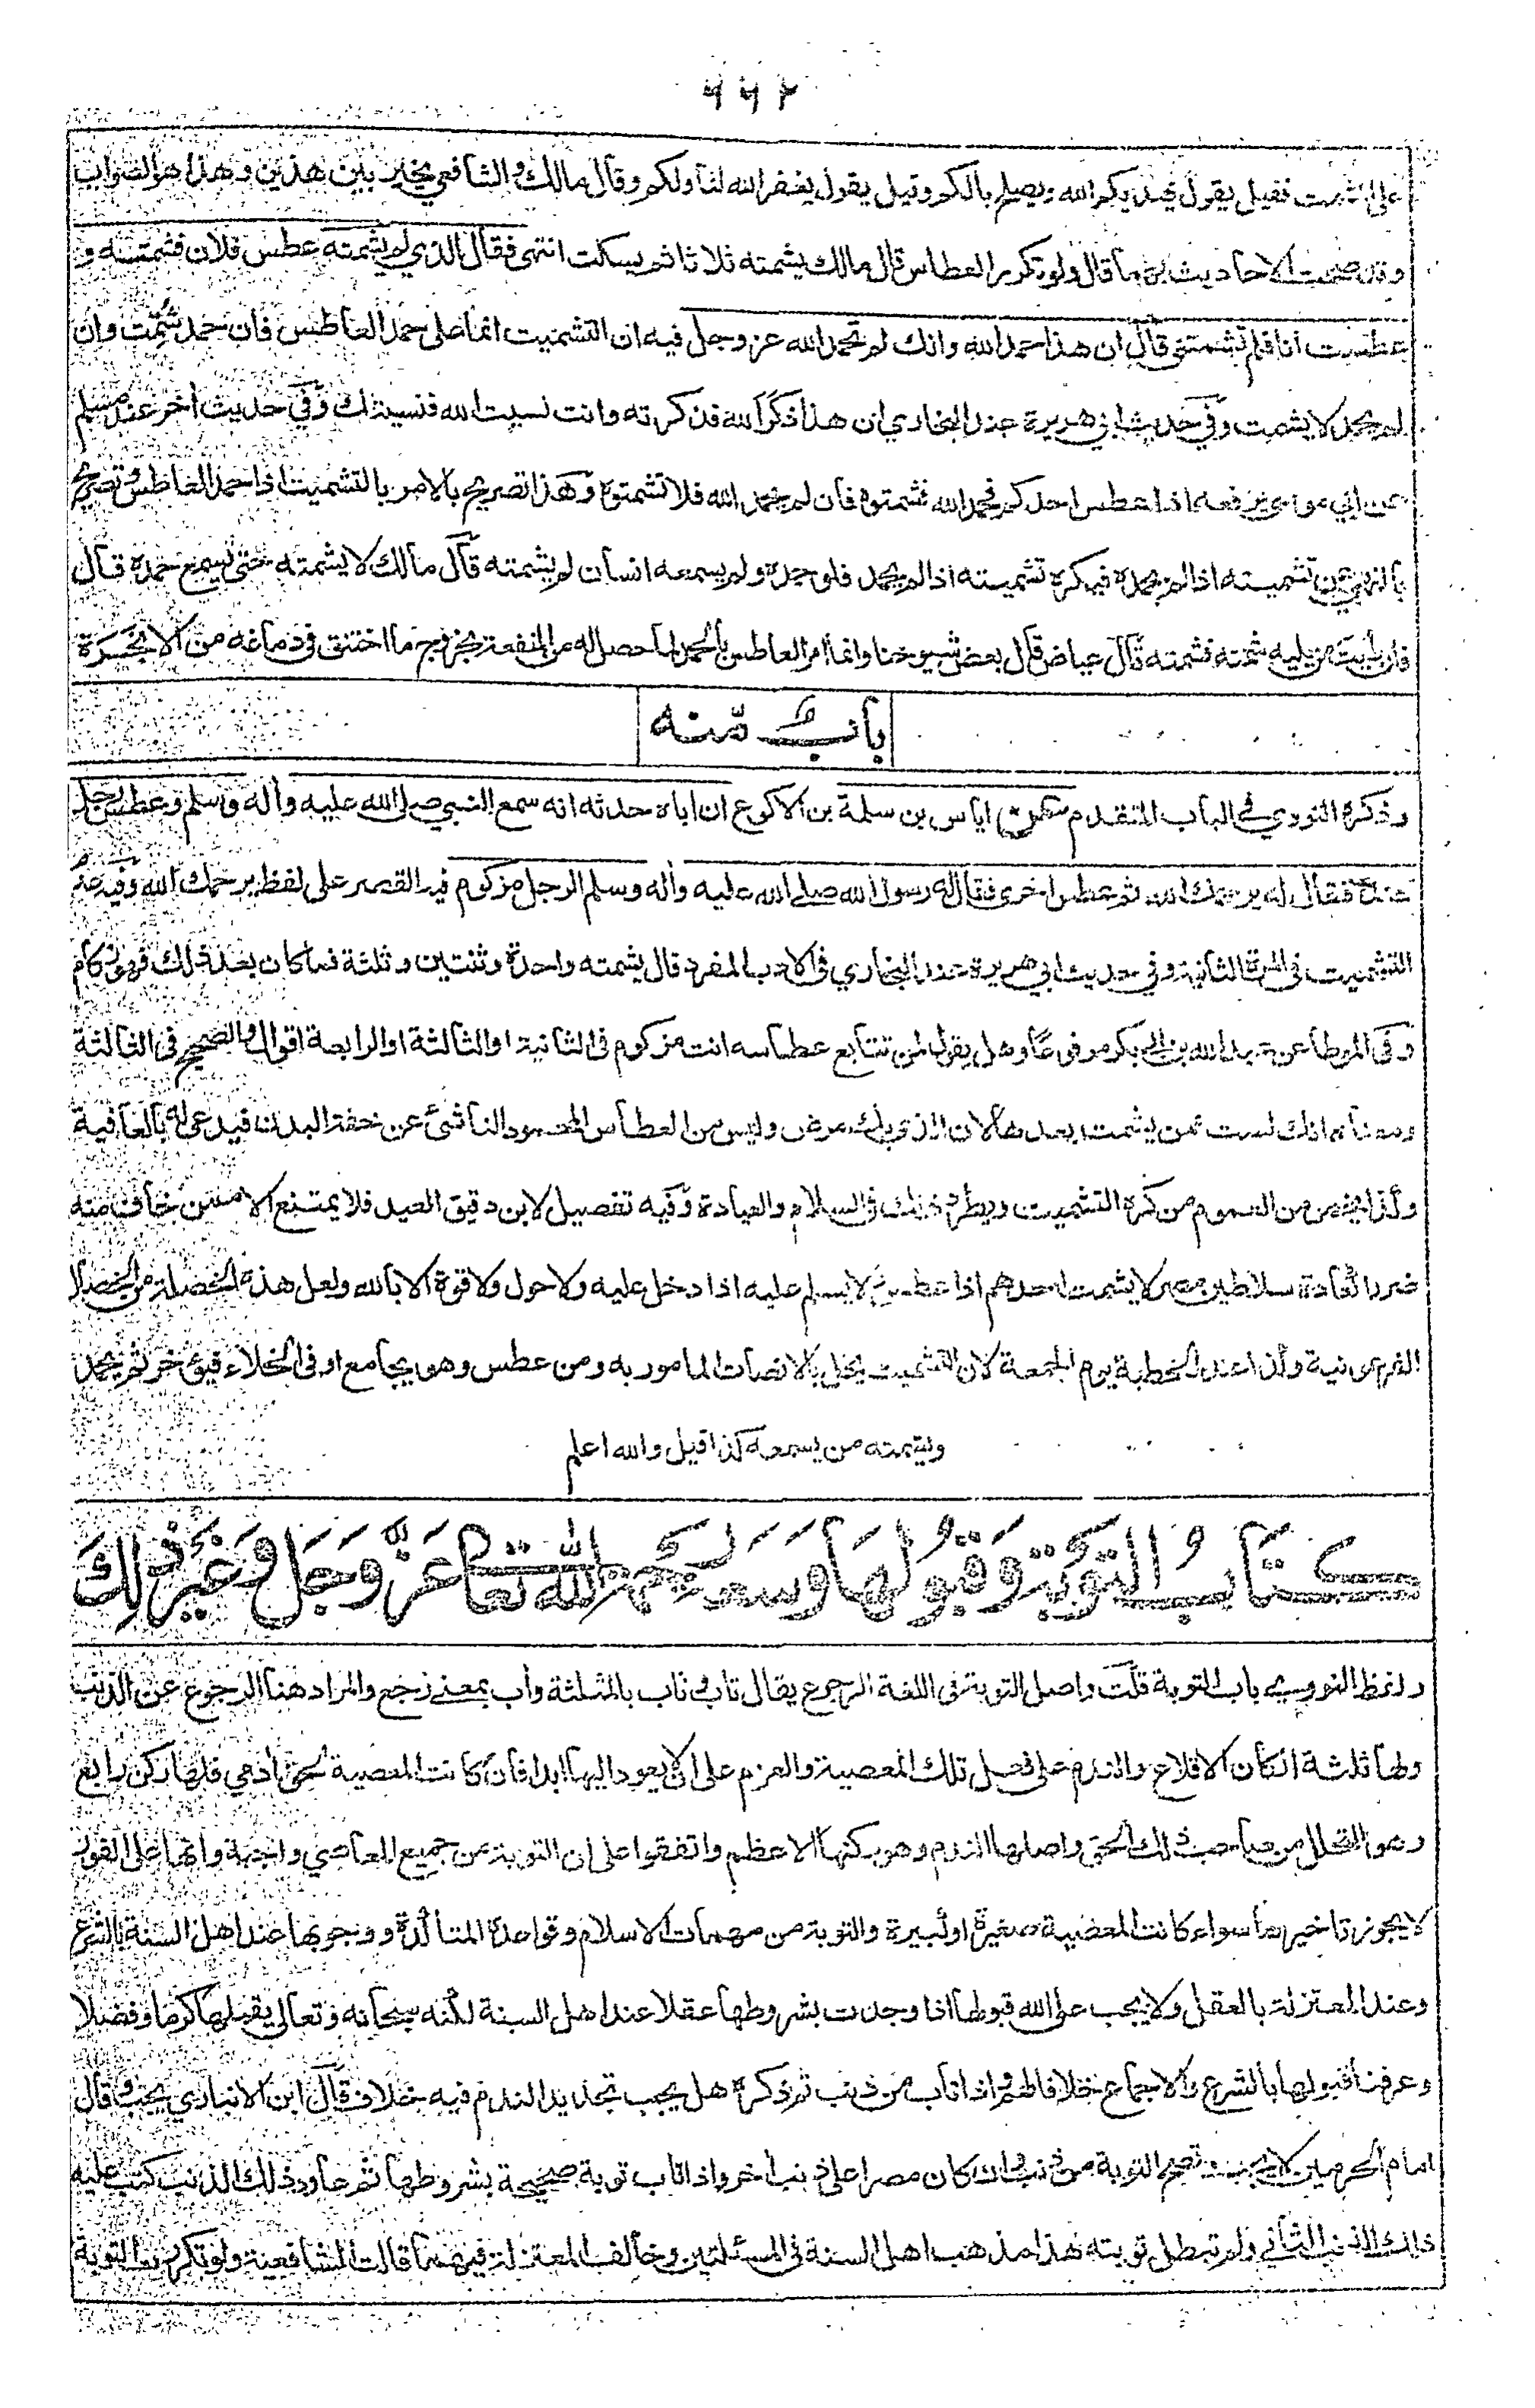 ٦٦٢
على المشمت فقيل يقول يهديكم الله ويصلح بالكم وقيل يقول يغفر الله لنا ولكم وقال مالك والشافعي يخير بين هذين وهذا هو الصواب
وقد صحت الاحاديث بهما قال ولو تكرر العطاس قال مالك يشمته ثلاثا ثم يسكت انتهى فقال الذي لم يشمته عطس فلان فشمته و
عطست انا فلم تشمتني قال ان هذا حمد الله وانك لم تحمد الله عز وجل فيه ان التشميت انما على حمد العاطس فان حمد شُمِّت وان
لم يحمد لا يشمت وفي حديث ابي هريرة عند البخاري ان هذا ذكر الله فذكرته وانت نسيت الله فنسيتك وفي حديث اخر عند مسلم
عن ابي موسى يرفعه اذا عطس احدكم فحمد الله فشمتوه فان لم يحمد الله فلا تشمتوه وهذا تصريح بالامر بالتشميت اذا حمد العاطس وتصريح
بالنهي عن تشميته اذا لم يحمده فيكره تشميته اذا لم يحمد فلو حمد ولم يسمعه انسان لم يشمته قال مالك لا يشمته حتى يسمع حمده قال
فان رأيت من يليه شمته فشمته قال عياض قال بعض شيوخنا وانما امر العاطس بالحمد لما حصل له من المنفعة بخروج ما اختنق في دماغه من الابخرة
باب منه
وذكره النووي في الباب المتقدم عن اياس بن سلمة بن الاكوع ان اباه حدثه انه سمع النبي صلى الله عليه وآله وسلم وعطس رجل
عنده فقال له يرحمك الله ثم عطس اخرى فقال له رسول الله صلى الله عليه وآله وسلم الرجل مزكوم فيه القصر على لفظ يرحمك الله وفيه عدم
التشميت في المرة الثانية وفي حديث ابي هريرة عند البخاري في الادب المفرد قال يشمته واحدة وثنتين وثلثة فما كان بعد ذلك فهو زكام
وفي الموطأ عن عبد الله بن ابي بكر مرفوعا وهل يقول لمن تتابع عطاسه انت مزكوم في الثانية او الثالثة او الرابعة اقوال والصحيح في الثالثة
ومعناه انك لست ممن يشمت بعدها لان الذي بك مرض وليس من العطاس المحمود الناشئ عن خفة البدن فيدعى له بالعافية
وكذا يخص من العموم من كره التشميت ويطرد ذلك في السلام والعيادة وفيه تفصيل لابن دقيق العيد فلا يمتنع الا ممن خاف منه
ضررا كعادة سلاطين مصر لا يشمت احدهم اذا عطس ولا يسلم عليه اذا دخل عليه ولا حول ولا قوة الا بالله ولعل هذه الخصلة من الخصال
الفرعونية وكذا عند الخطبة يوم الجمعة لان التشميت يخل بالانصات المامور به ومن عطس وهو يجامع او في الخلاء فيؤخر ثم يحمد
ويشمته من يسمعه كذا قيل والله اعلم
كتاب التوبة وقبولها وسعة رحمة الله تعالى عز وجل وغير ذلك
ولفظ النووي باب التوبة قلت واصل التوبة في اللغة الرجوع يقال تاب وثاب بالمثلثة وآب بمعنى رجع والمراد هنا الرجوع عن الذنب
ولها ثلثة اركان الاقلاع والندم على فعل تلك المعصية والعزم على ان لا يعود اليها ابدا فان كانت المعصية لحق آدمي فلها ركن رابع
وهو التحلل من صاحب ذلك الحق واصلها الندم وهو ركنها الاعظم واتفقوا على ان التوبة من جميع المعاصي واجبة وانها على الفور
لا يجوز تاخيرها سواء كانت المعصية صغيرة او كبيرة والتوبة من مهمات الاسلام وقواعده المتأكدة ووجوبها عند اهل السنة بالشرع
وعند المعتزلة بالعقل ولا يجب على الله قبولها اذا وجدت بشروطها عقلا عند اهل السنة لكنه سبحانه وتعالى يقبلها كرما وفضلا
وعرفنا قبولها بالشرع والاجماع خلافا لهم واذا تاب من ذنب ثم ذكره هل يجب تجديد الندم فيه خلاف قال ابن الانباري يجب وقال
امام الحرمين لا يجب وتصح التوبة من ذنب وان كان مصرا على ذنب اخر واذا تاب توبة صحيحة بشروطها ثم عاود ذلك الذنب كتب عليه
ذلك الذنب الثاني ولم تبطل توبته هذا مذهب اهل السنة في المسئلتين وخالف المعتزلة فيهما قالت الشافعية ولو تكررت التوبة